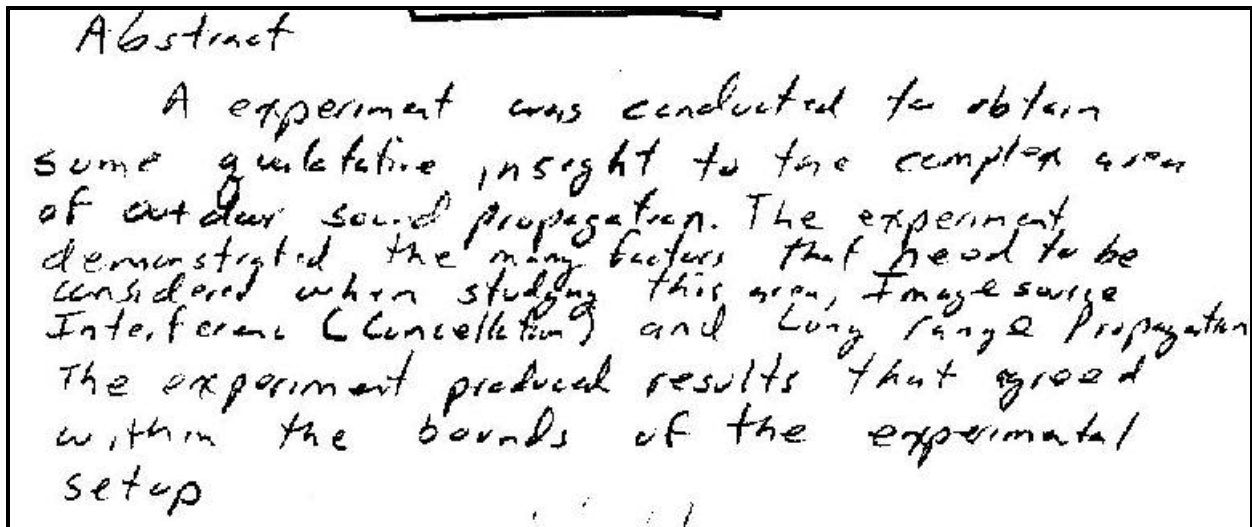 Abstract
A experiment was conducted to obtain
some qualitative insight to the complex area
of outdoor sound propagation. The experiment
demonstrated the many factors that need to be
considered when studying this area, Image source
Interference (Cancellation) and Long range Propagation
The experiment produced results that agreed
within the bounds of the experimental
setup